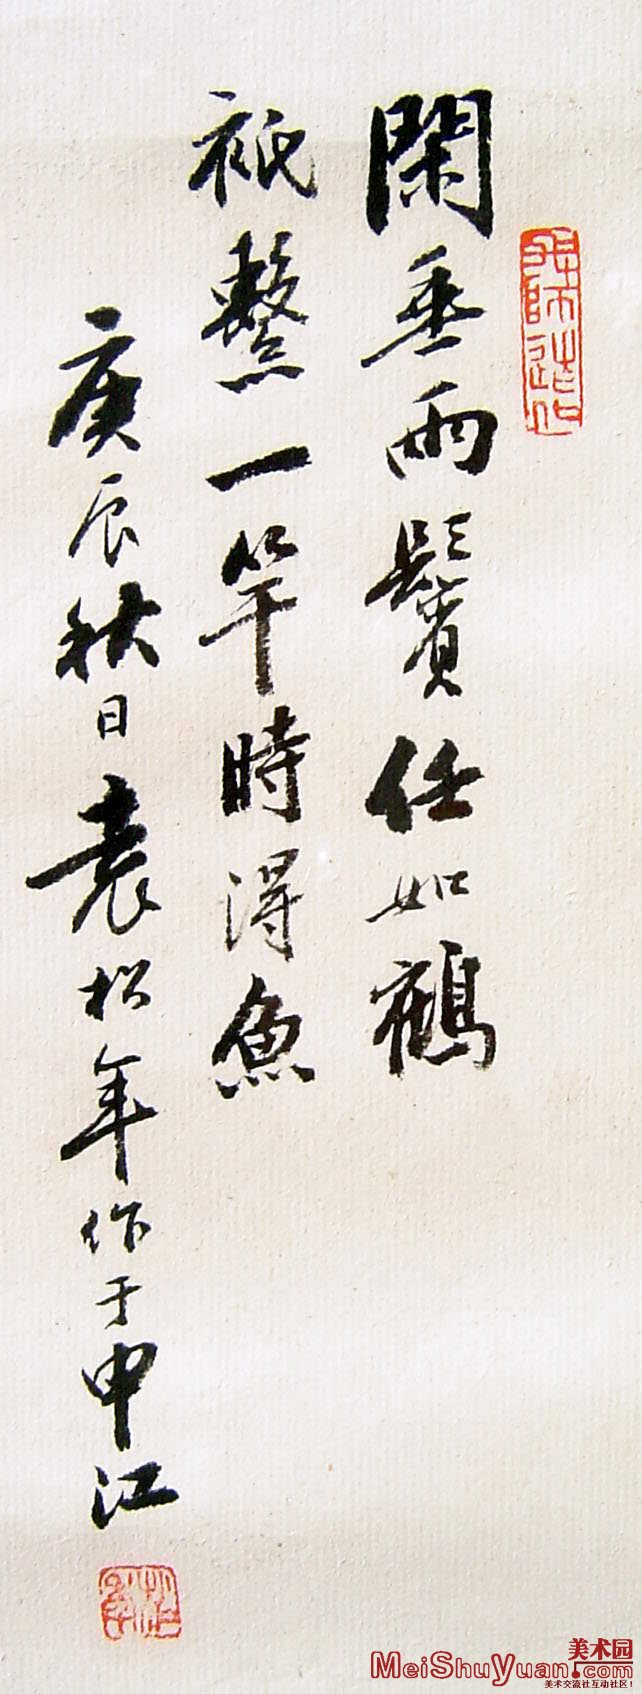 閑垂兩鬢任如鶴
祇繫一竿時得魚
庚辰秋日袁松年作于申江
美术园
MeiShuYuan.com
美术交流社互动社区！